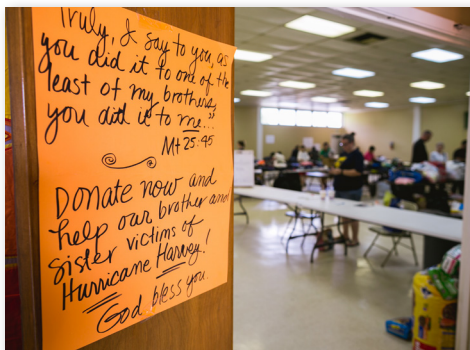 Truly, I say to you, as
you did it to one of the
least of my brothers,
you did it to me..."
Mt 25:45
Donate now and
help our brother and
sister victims of
Hurricane Harvey!
God bless you